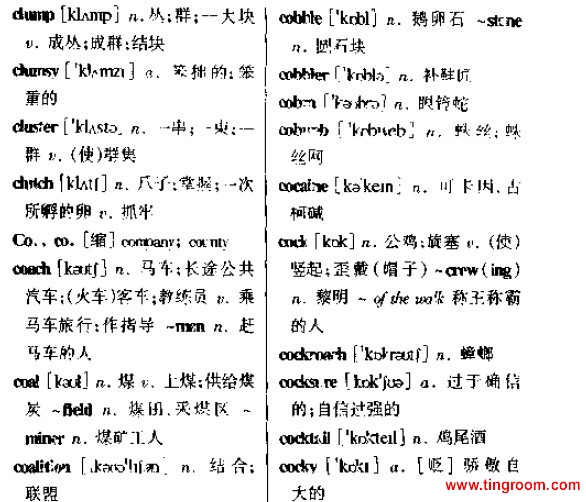 clump [klʌmp] n. 丛;群;一大块
v. 成丛;成群;结块
clumsy ['klʌmzɪ] a. 笨拙的;笨
重的
cluster ['klʌstə] n. 一串;一束;一
群 v. (使)群集
clutch [klʌtʃ] n. 爪子;掌握;一次
所孵的卵 v. 抓牢
Co., co. [缩] company; county
coach [kəutʃ] n. 马车;长途公共
汽车;(火车)客车;教练员 v. 乘
马车旅行;作指导 ~man n. 赶
马车的人
coal [kəul] n. 煤 v. 上煤;供给煤
炭 ~field n. 煤田、采煤区 ~
miner n. 煤矿工人
coalition [ˌkəuə'lɪʃən] n. 结合;
联盟
cobble ['kɒbl] n. 鹅卵石 ~stone
n. 圆石块
cobbler ['kɒblə] n. 补鞋匠
cobra ['kəubrə] n. 眼镜蛇
cobweb ['kɒbweb] n. 蛛丝;蛛
丝网
cocaine [kə'keɪn] n. 可卡因、古
柯碱
cock [kɒk] n. 公鸡;旋塞 v. (使)
竖起;歪戴(帽子) ~crow(ing)
n. 黎明 ~ of the walk 称王称霸
的人
cockroach ['kɒkrəutʃ] n. 蟑螂
cocksure [kɒk'ʃuə] a. 过于确信
的;自信过强的
cocktail ['kɒkteɪl] n. 鸡尾酒
cocky ['kɒkɪ] a. [贬] 骄傲自
大的
www.tingroom.com